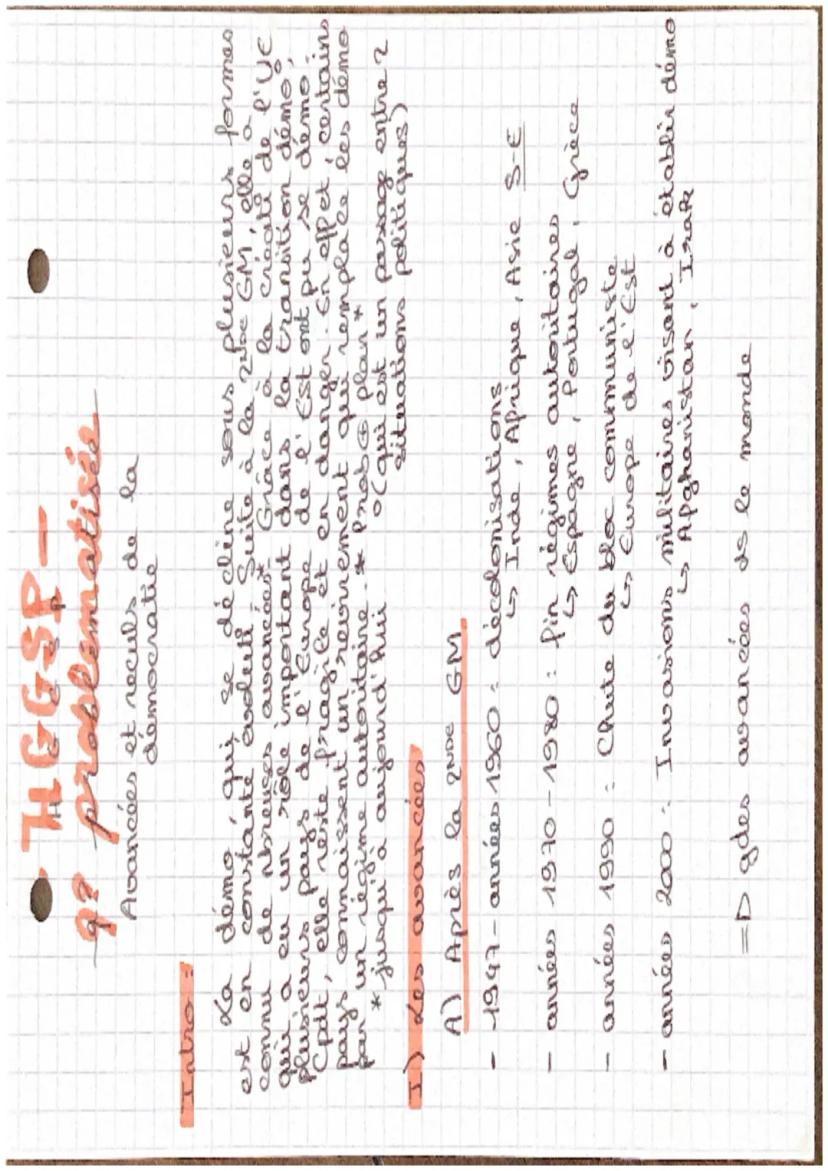 HGGSP -
q? problématisée
Avancées et reculs de la
démocratie
Intro :
La démo, qui se décline sous plusieurs formes
est en constante évolut°. Suite à la 2nde GM, elle a
connu de nbreuses avancées*. Grâce à la créat° de l'UE
qui a eu un rôle important dans la transition démo°,
plusieurs pays de l'Europe de l'Est ont pu se démo.
Cpdt, elle reste fragile et en danger. En effet, certains
pays connaissent un revirement qui remplace les démo
par un régime autoritaire. * Prob ⊕ plan *
* jusqu'à aujourd'hui
o (qui est un passage entre 2
situations politiques)
I) Les avancées
A) Après la 2NDE GM
- 1947 - années 1960 : décolonisations
↳ Inde, Afrique, Asie S-E
- années 1970 - 1980 : fin régimes autoritaires
↳ Espagne, Portugal, Grèce
- années 1990 : Chute du bloc communiste
↳ Europe de l'Est
- années 2000 : Invasions militaires visant à établir démo
↳ Afghanistan, Irak
=D gdes avancées ds le monde